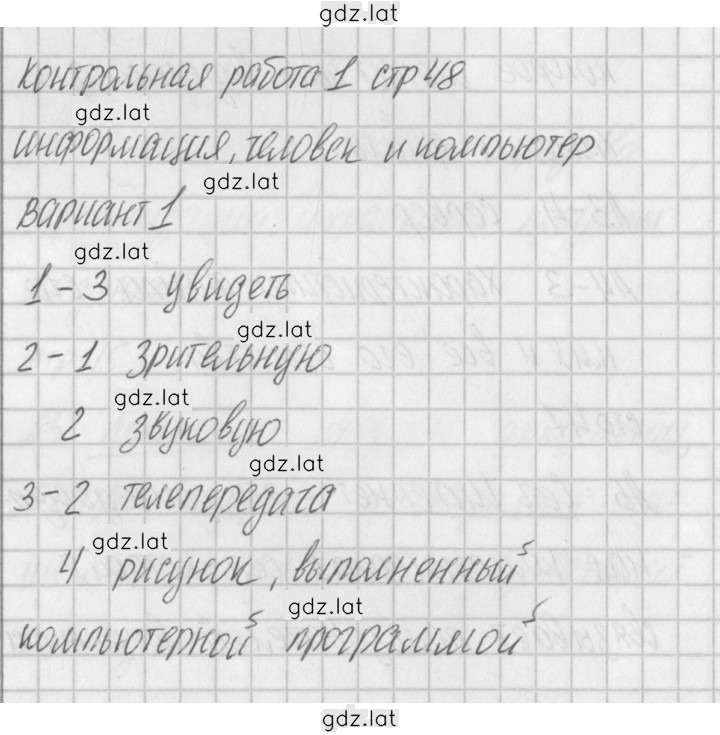 gdz.lat
Контрольная работа 1 стр 48
gdz.lat
информация, человек и компьютер
gdz.lat
вариант 1
gdz.lat
1-3 увидеть
gdz.lat
2-1 зрительную
gdz.lat
2 звуковую
gdz.lat
3-2 телепередача
gdz.lat
4 рисунок, выполненный
gdz.lat
компьютерной программой
gdz.lat